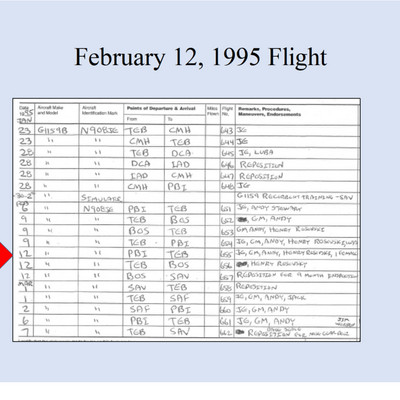 February 12, 1995 Flight
Date 1995 Aircraft Make and Model Aircraft Identification Mark Points of Departure & Arrival Miles Flown Flight No. Remarks, Procedures, Maneuvers, Endorsements
From To
JAN
23 G1159B N908JE TEB CMH 643 JE
23 " " CMH TEB 644 JE
28 " " TEB DCA 645 JE, LUBA
28 " " DCA IAD 646 REPOSITION
28 " " IAD CMH 647 REPOSITION
28 " " CMH PBI 648 JE
" SIMULATOR G1159 RECURRENT TRAINING-SAV
FEB
6 " N908JE PBI TEB 651 JE, ANDY STEWART
9 " " TEB BOS 652 GM, ANDY
9 " " BOS TEB 653 GM, ANDY, HENRY
9 " " TEB PBI 654 JE, GM, ANDY, HENRY
12 " " PBI TEB 655 JE, GM, ANDY, HENRY 1 FEMALE
12 " " TEB BOS 656 HENRY
12 " " BOS SAV 657 REPOSITION FOR
MAR
1 " " SAV TEB 658 REPOSITION
1 " " TEB SAF 659 JE, GM, ANDY,
2 " " SAF PBI 660 JE, GM, ANDY
6 " " PBI TEB 661 JE, GM, ANDY
7 " " TEB SAV 662 REPOSITION FOR